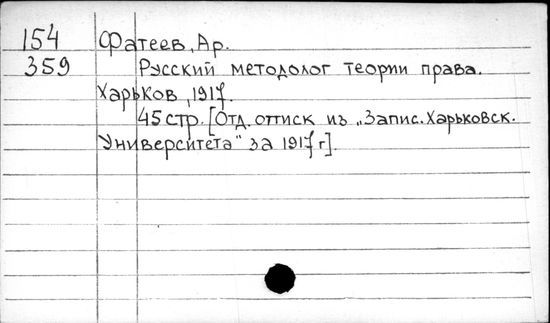 154 Фатеев, Ар.
359 Русский методолог теории права.
Харьков, 1917.
45 стр. [Отд. оттиск из „Запис. Харьковск.
Университета" за 1917 г].